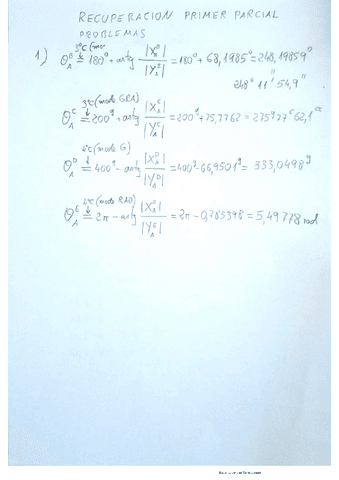 RECUPERACION PRIMER PARCIAL
PROBLEMAS
1) θ_A^B = 180° + arctg |X_A^B| / |Y_A^B| = 180° + 68,1985° = 248,19859°
248° 11' 54,9"
3ºC (modo GRA)
θ_A^C = 200^g + arctg |X_A^C| / |Y_A^C| = 200^g + 75,7762 = 275^g 77^c 62,1^cc
4ºC (modo G)
θ_A^D = 400^g - arctg |X_A^D| / |Y_A^D| = 400^g - 66,9501^g = 333,0498^g
4ºC (modo RAD)
θ_A^E = 2π - arctg |X_A^E| / |Y_A^E| = 2π - 0,785398 = 5,49778 rad